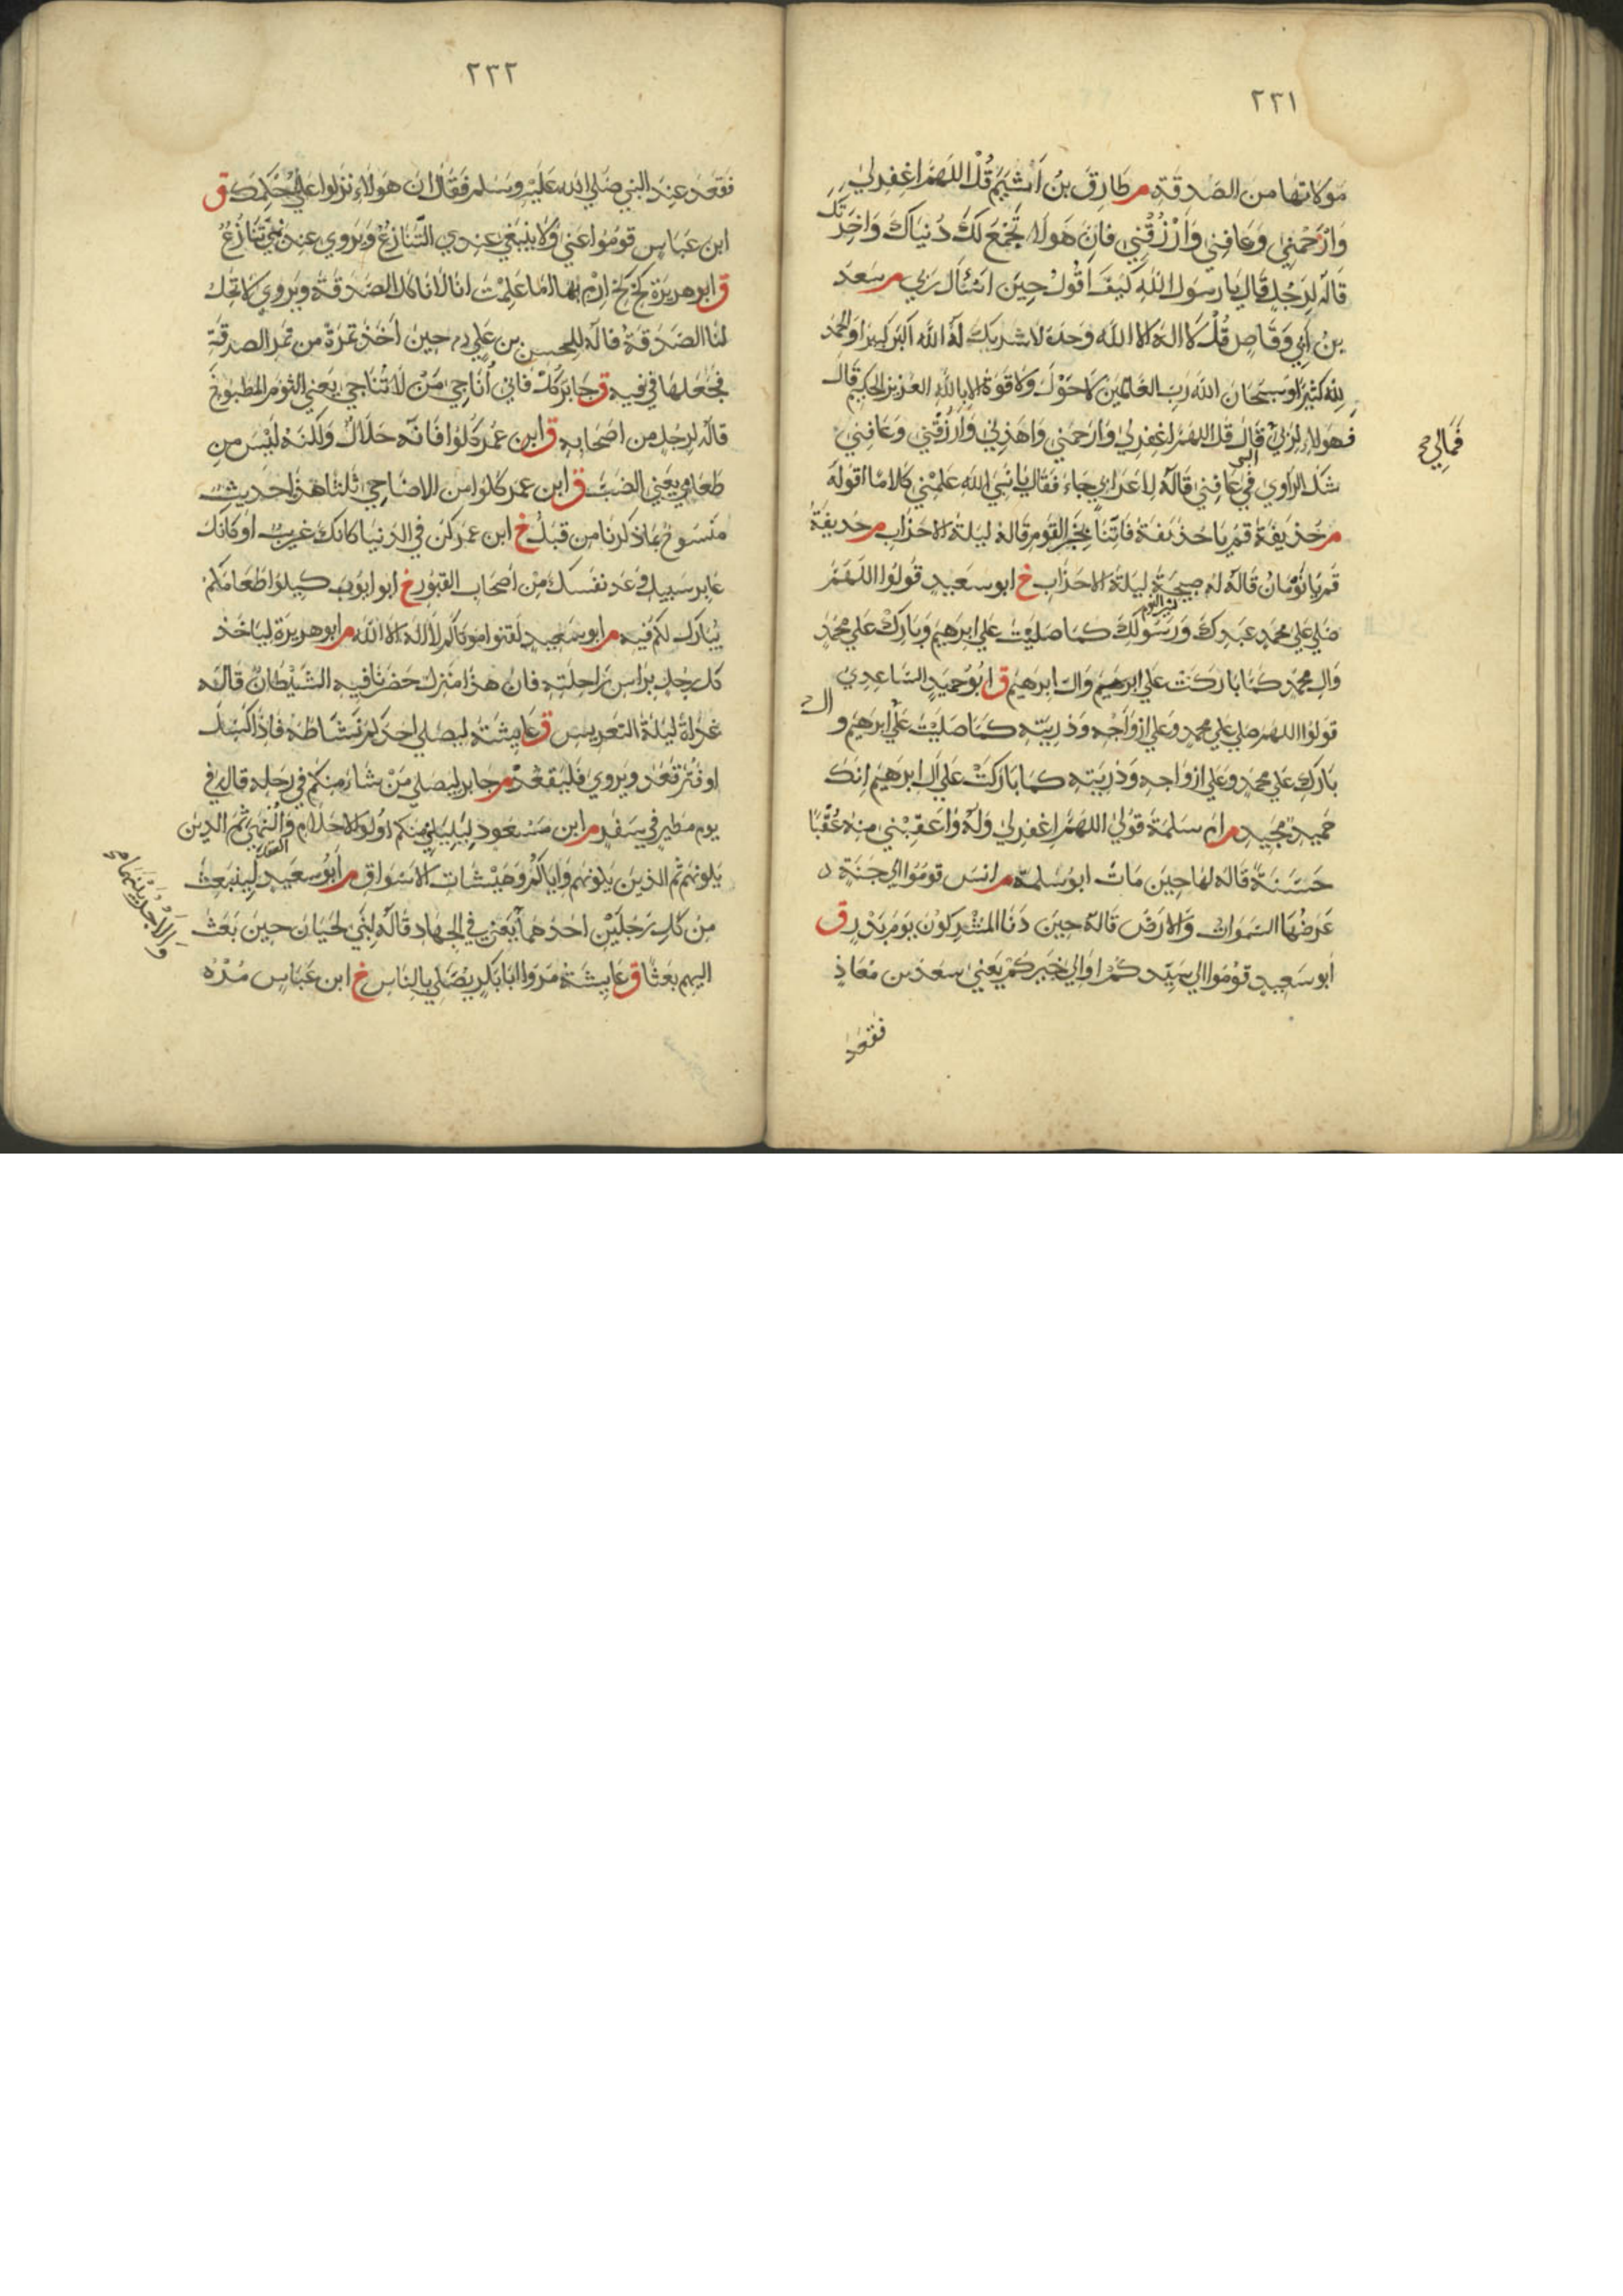 ٢٣١
مولاتها من الصدقة م طارق بن اشيم قل اللهم اغفر لي
وارحمني وعافني وارزقني فان هولاء تجمع لك دنياك واخرتك
قاله لرجل قال يا رسول الله كيف اقول حين اسئال ربي م سعد
بن ابي وقاص قل لا اله الا الله وحده لا شريك له الله اكبر كبيرا والحمد
لله كثيرا وسبحان الله رب العلمين لا حول ولا قوة الا بالله العزيز الحكيم قال
فهولاء لربي قال قل اللهم اغفر لي وارحمني واهدني وارزقني وعافني
فمالي صح
شك الراوي في عافني قاله لاعرابي جاء فقال يا نبي الله علمني كلاما اقوله
م حذيفة قم يا حذيفة فاتنا بخبر القوم قاله ليلة الاحزاب م حذيفة
قم يا نومان قاله له صبيحة ليلة الاحزاب خ ابو سعيد قولوا اللهم
صلي علي محمد عبدك ورسولك كما صليت علي ابرهيم وبارك علي محمد
وال محمد كما باركت علي ابرهيم وال ابرهيم ق ابو حميد الساعدي
قولوا اللهم صلي علي محمد وعلي ازواجه وذريته كما صليت علي ابرهيم و
بارك علي محمد وعلي ازواجه وذريته كما باركت علي ال ابرهيم انك
حميد مجيد م ام سلمة قولي اللهم اغفر لي وله واعقبني منه عقبا
حسنة قاله لها حين مات ابو سلمة م انس قوموا الي جنة
عرضها السموات والارض قاله حين دنا المشركون يوم بدر ق
ابو سعيد قوموا الي سيدكم او الي خيركم يعني سعد بن معاذ
فقعد
٢٣٢
فقعد عند النبي صلي الله عليه وسلم فقال ان هولاء نزلوا علي حكمك ق
ابن عباس قوموا عني ولا ينبغي عندي التنازع ويروي عند نبي تنازع
ق ابو هريرة كخ كخ ارم بها اما علمت انا لا ناكل الصدقة ويروي لا تحل
لنا الصدقة قاله للحسن بن علي حين اخذ تمرة من تمر الصدقة
فجعلها في فيه ق جابر كل فاني اناجي من لا تناجي يعني الثوم المطبوخ
قاله لرجل من اصحابه ق ابن عمر كلوا فانه حلال ولكنه ليس من
طعامي يعني الضب ق ابن عمر كلوا من الاضاحي ثلثا هذا حديث
منسوخ بما ذكرنا من قبل خ ابن عمر كن في الدنيا كانك غريب او كانك
عابر سبيل وعد نفسك من اصحاب القبور خ ابو ايوب كيلوا طعامكم
يبارك لكم فيه م ابو سعيد لقنوا موتاكم لا اله الا الله م ابو هريرة لياخذ
كل رجل براس راحلته فان هذا منزل حضرنا فيه الشيطان قاله
غداة ليلة التعريس ق عايشة ليصلي احدكم نشاطه فاذا كسل
او فتر قعد ويروي فليقعد م جابر ليصلي من شاء منكم في رحله قال في
يوم مطير في سفر م ابن مسعود ليليني منكم اولوا الاحلام والنهي ثم الذين
يلونهم ثم الذين يلونهم واياكم وهيشات الاسواق م ابو سعيد لينبعث
من كل رجلين احدهما يعني في الجهاد قاله لبني لحيان حين بعث
والاجر بينهما صح
اليهم بعثا ق عايشة مروا ابا بكر يصلي بالناس خ ابن عباس مره